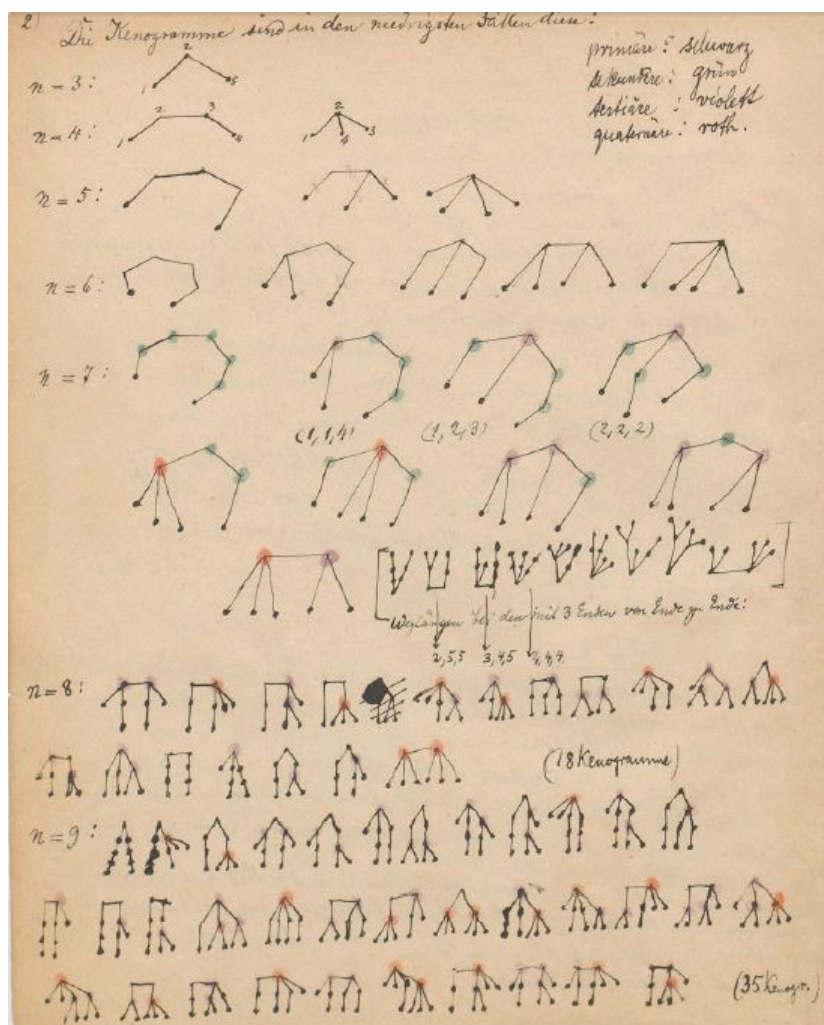 2) Die Kenogramme sind in den niedrigsten Fällen diese:
primäre: schwarz
sekundäre: grün
tertiäre: violett
quaternäre: roth.
n=3:
1 2 3
n=4:
1 2 3 4
1 2 4 3
n=5:
n=6:
n=7:
(1,1,4) (1,2,3) (2,2,2)
Weglängen bei den mit 3 Enden von Ende zu Ende:
2,5,5 3,4,5 4,4,4
n=8:
(18 Kenogramme)
n=9:
(35 Kenogr.)